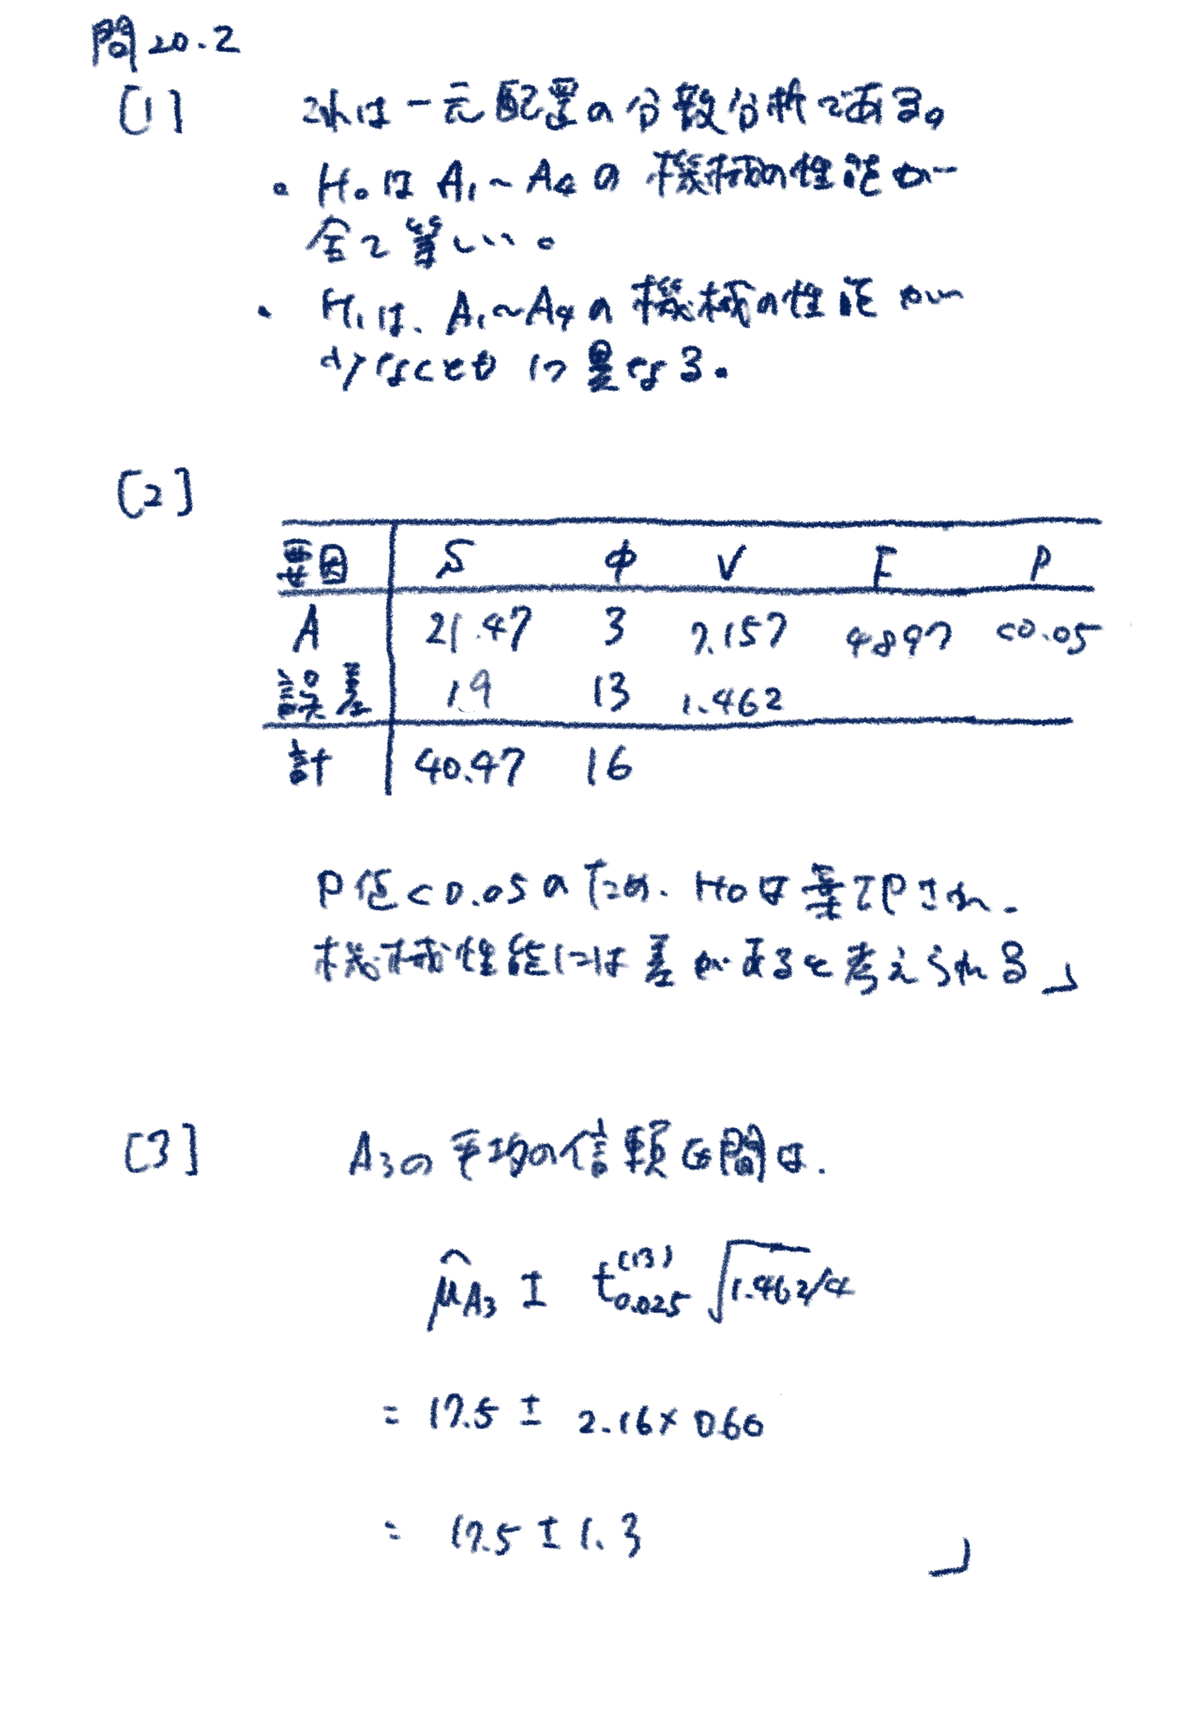 問20.2
[1] これは一元配置の分散分析である。
・H₀はA₁～A₄の機械の性能が
全て等しい。
・H₁は、A₁～A₄の機械の性能が
少なくとも1つ異なる。
[2]
要因 S φ V F P
A 21.47 3 7.157 4.897 <0.05
誤差 19 13 1.462
計 40.47 16
P値<0.05のため、H₀は棄却され、
機械性能には差があると考えられる」
[3] A₃の平均の信頼区間は、
μ̂A₃ ± t₀.₀₂₅⁽¹³⁾ √1.462/4
= 17.5 ± 2.16×0.60
= 17.5 ± 1.3 」